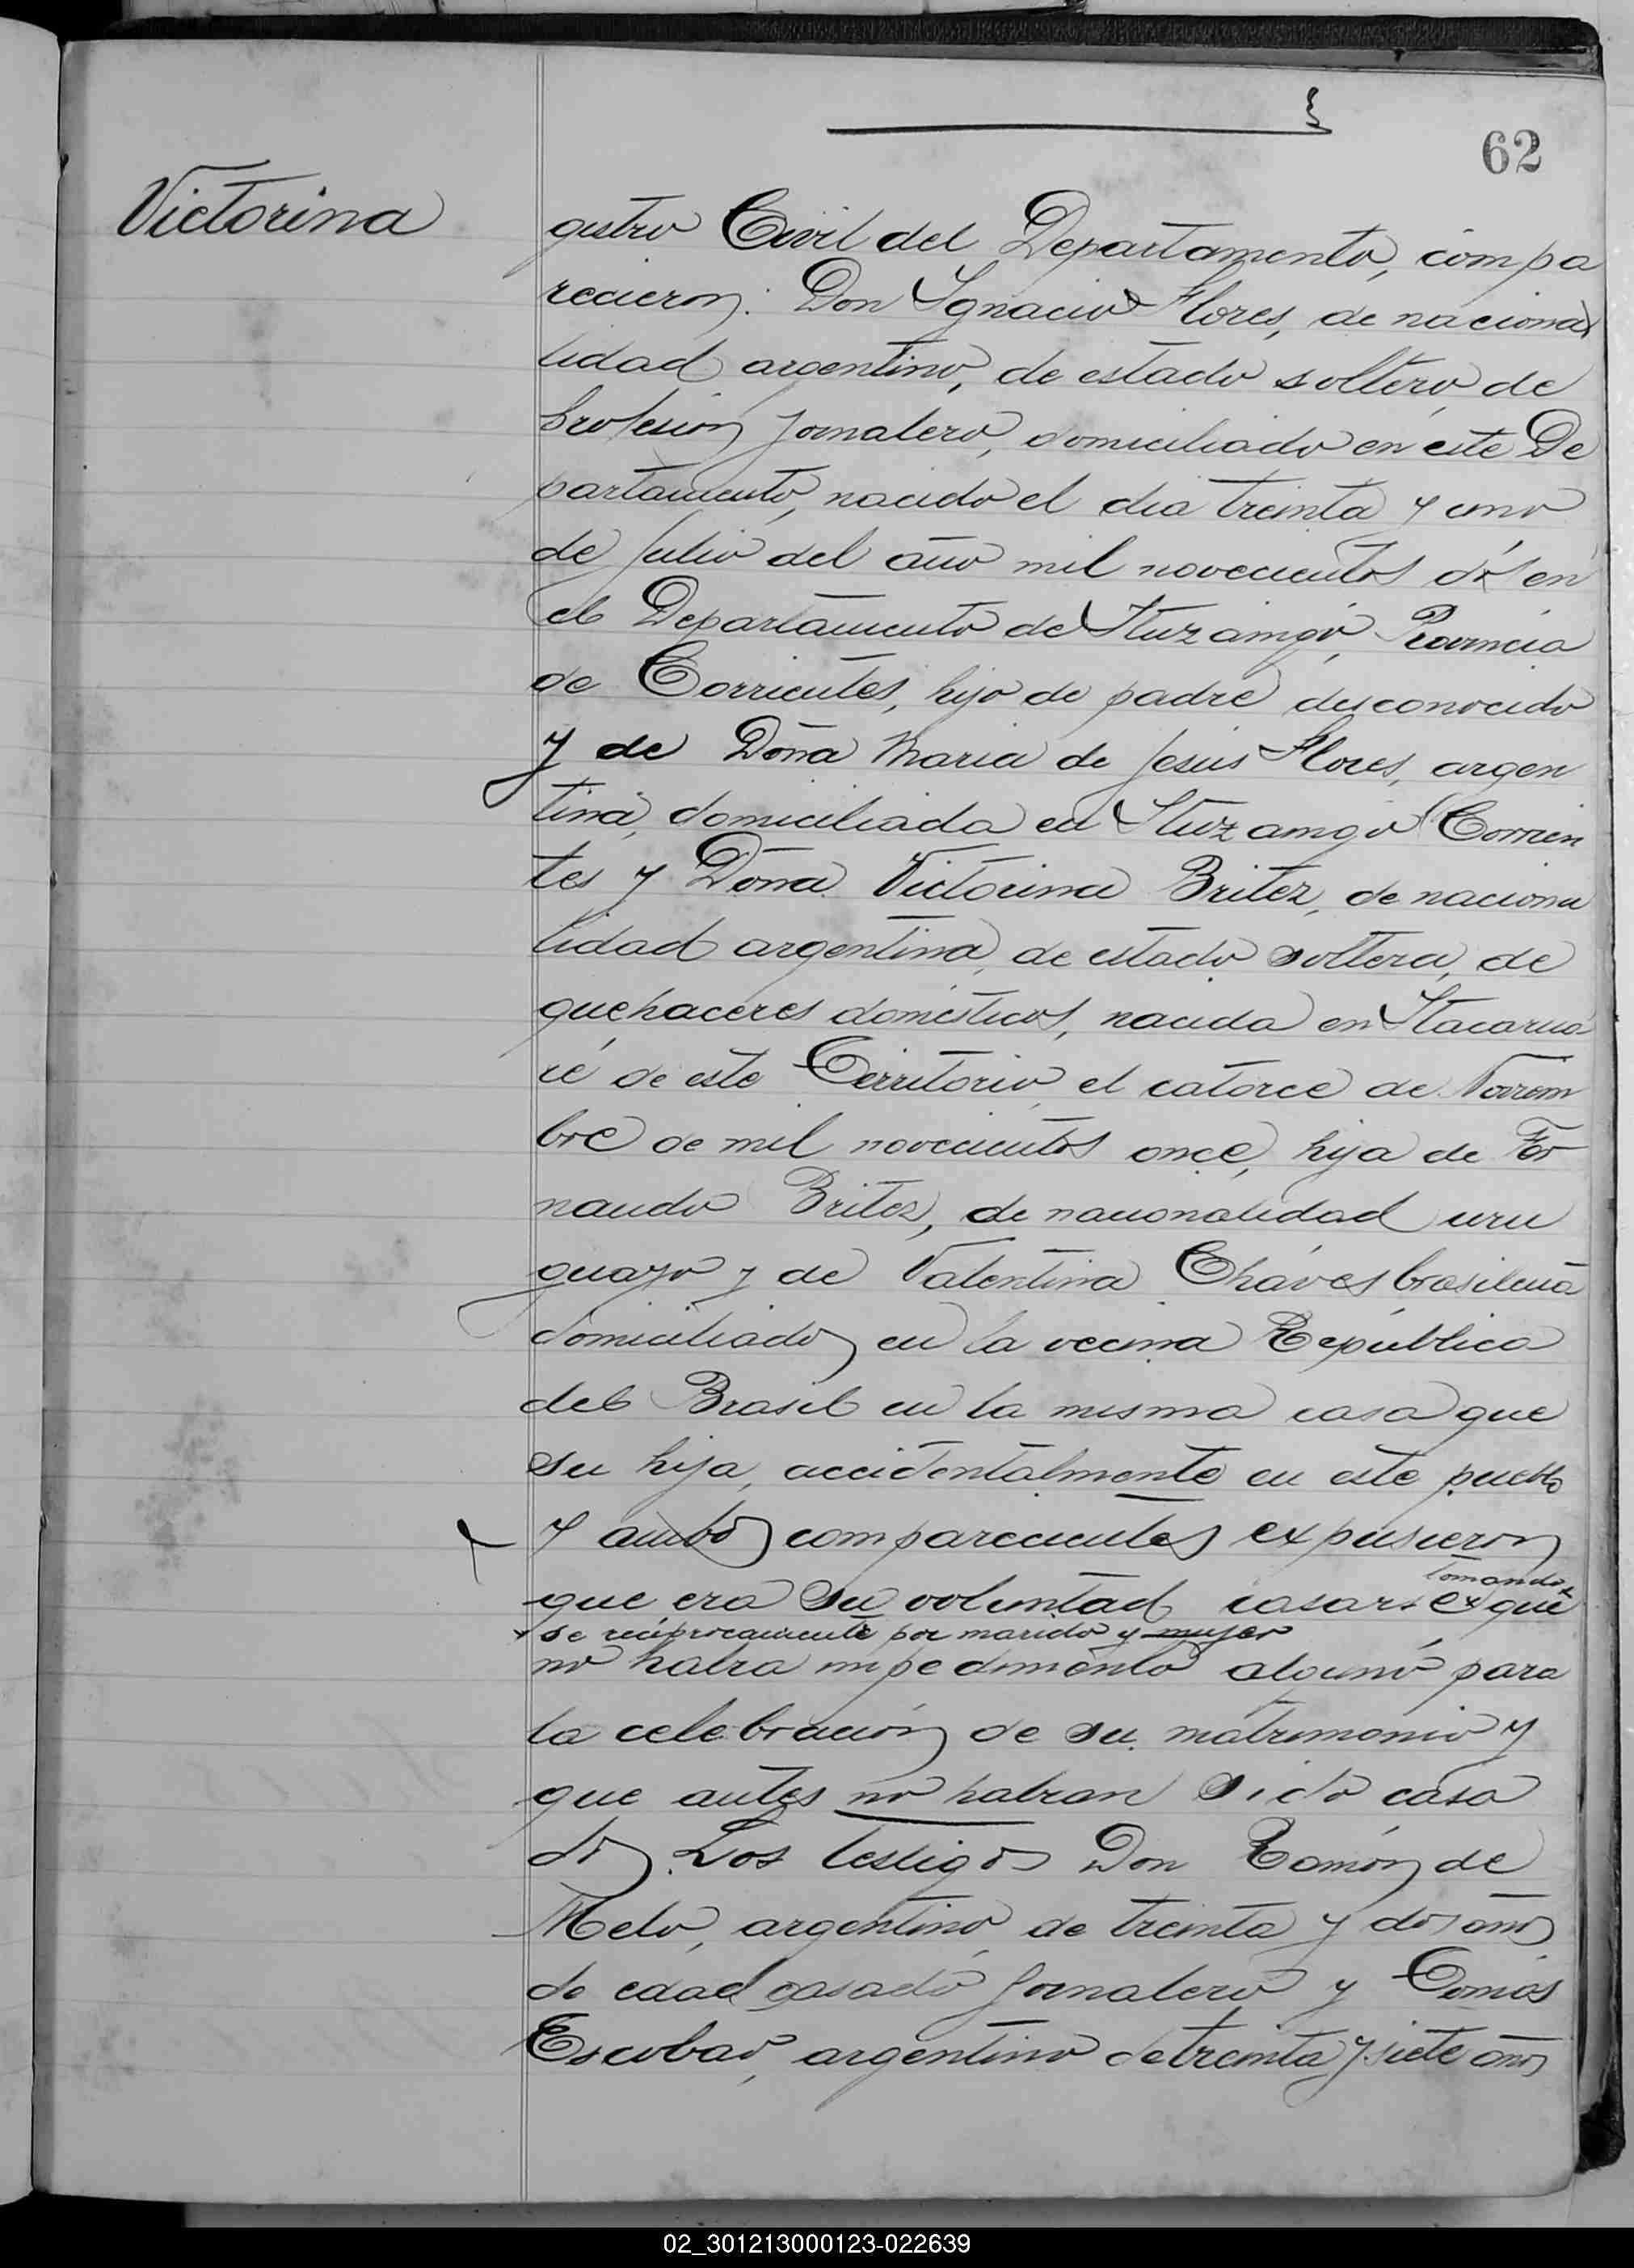 62
Victorina
gistro Civil del Departamento, compa
recieron: Don Ignacio Flores, de naciona
lidad argentino, de estado soltero, de
profesión jornalero, domiciliado en este De
partamento, nacido el dia treinta y uno
de Julio del año mil novecientos dos en
el Departamento de Ituzaingó, Provincia
de Corrientes, hijo de padre desconocido
y de Doña Maria de Jesus Flores, argen
tina, domiciliada en Ituzaingó Corrien
tes y Doña Victorina Britez, de naciona
lidad argentina, de estado soltera, de
quehaceres domésticos, nacida en Itacarua
ré de este Territorio, el catorce de Noviem
bre de mil novecientos once, hija de Fer
nando Britez, de nacionalidad uru
guayo y de Valentina Cháves brasileña
domiciliados en la vecina República
del Brasil en la misma casa que
su hija, accidentalmente en este pueblo
y ambos comparecientes expusieron
tomando
que era su voluntad casarse que
se reciprocamente por marido y mujer
no habia impedimento alguno para
la celebración de su matrimonio y
que antes no habian sido casa
dos. Los testigos Don Ramón de
Melo, argentino, de treinta y dos años
de edad casado jornalero y Tomás
Escobar, argentino de treinta y siete años
02_301213000123-022639